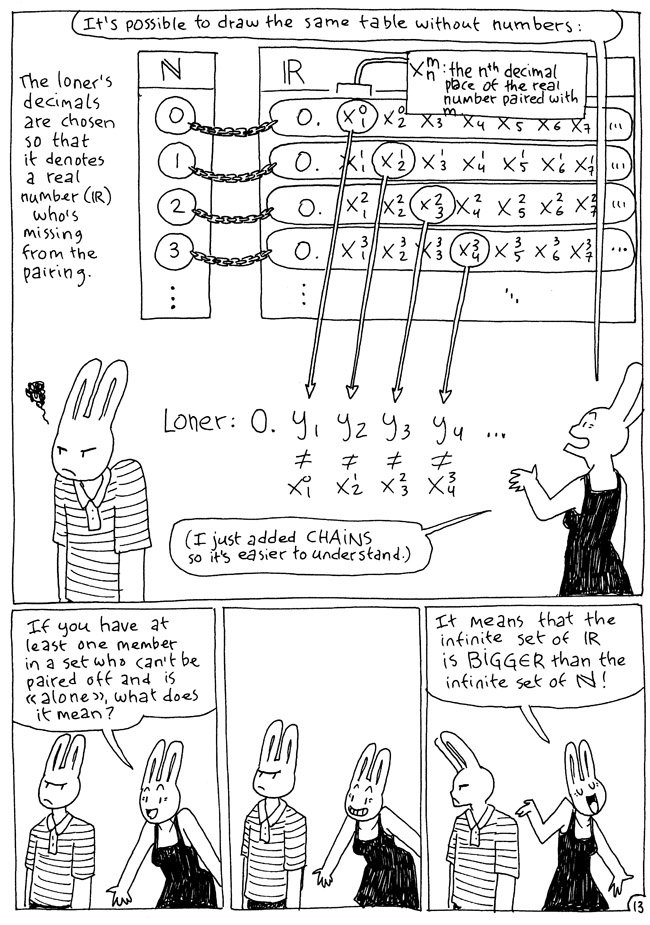 It's possible to draw the same table without numbers:
The loner's
decimals
are chosen
so that
it denotes
a real
number (IR)
who's
missing
from the
pairing.
ℕ
IR
xₙᵐ: the nth decimal
place of the real
number paired with
m
0 0. x₁⁰ x₂⁰ x₃ x₄ x₅ x₆ x₇ ...
1 0. x₁¹ x₂¹ x₃¹ x₄¹ x₅¹ x₆¹ x₇¹ ...
2 0. x₁² x₂² x₃² x₄² x₅² x₆² x₇² ...
3 0. x₁³ x₂³ x₃³ x₄³ x₅³ x₆³ x₇³ ...
⋮ ⋮ ⋱
Loner: 0. y₁ y₂ y₃ y₄ ...
≠ ≠ ≠ ≠
x₁⁰ x₂¹ x₃² x₄³
(I just added CHAiNS
so it's easier to understand.)
If you have at
least one member
in a set who can't be
paired off and is
«alone», what does
it mean?
It means that the
infinite set of IR
is BiGGER than the
infinite set of ℕ!
13